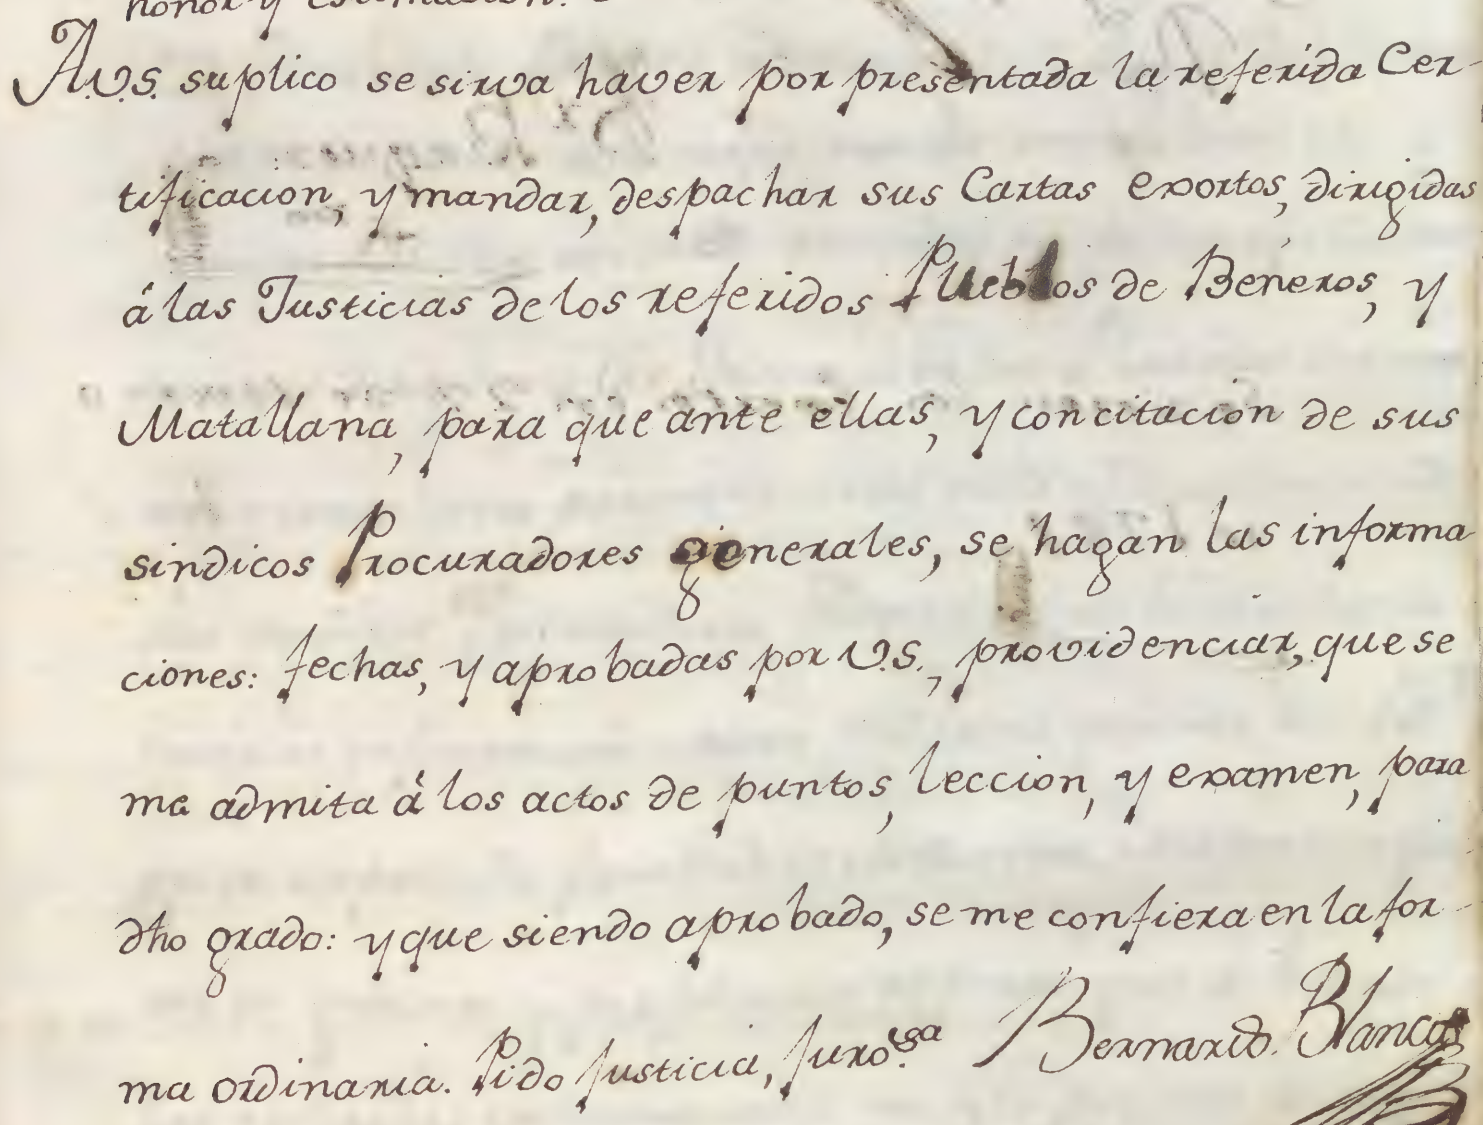 honor y estimacion.
A.V.S. suplico se sirva haver por presentada la referida Cer-
tificacion, y mandar, despachar sus Cartas exortos, dirigidas
á las Justicias de los referidos Pueblos de Beneros, y
Matallana, para que ante ellas, y con citacion de sus
sindicos Procuradores generales, se hagan las informa
ciones: fechas, y aprobadas por V.S., providenciar, que se
me admita á los actos de puntos, leccion, y examen, para
dho grado: y que siendo aprobado, se me confiera en la for-
ma ordinaria. Pido Justicia, Juro. &a Bernardo Blanco